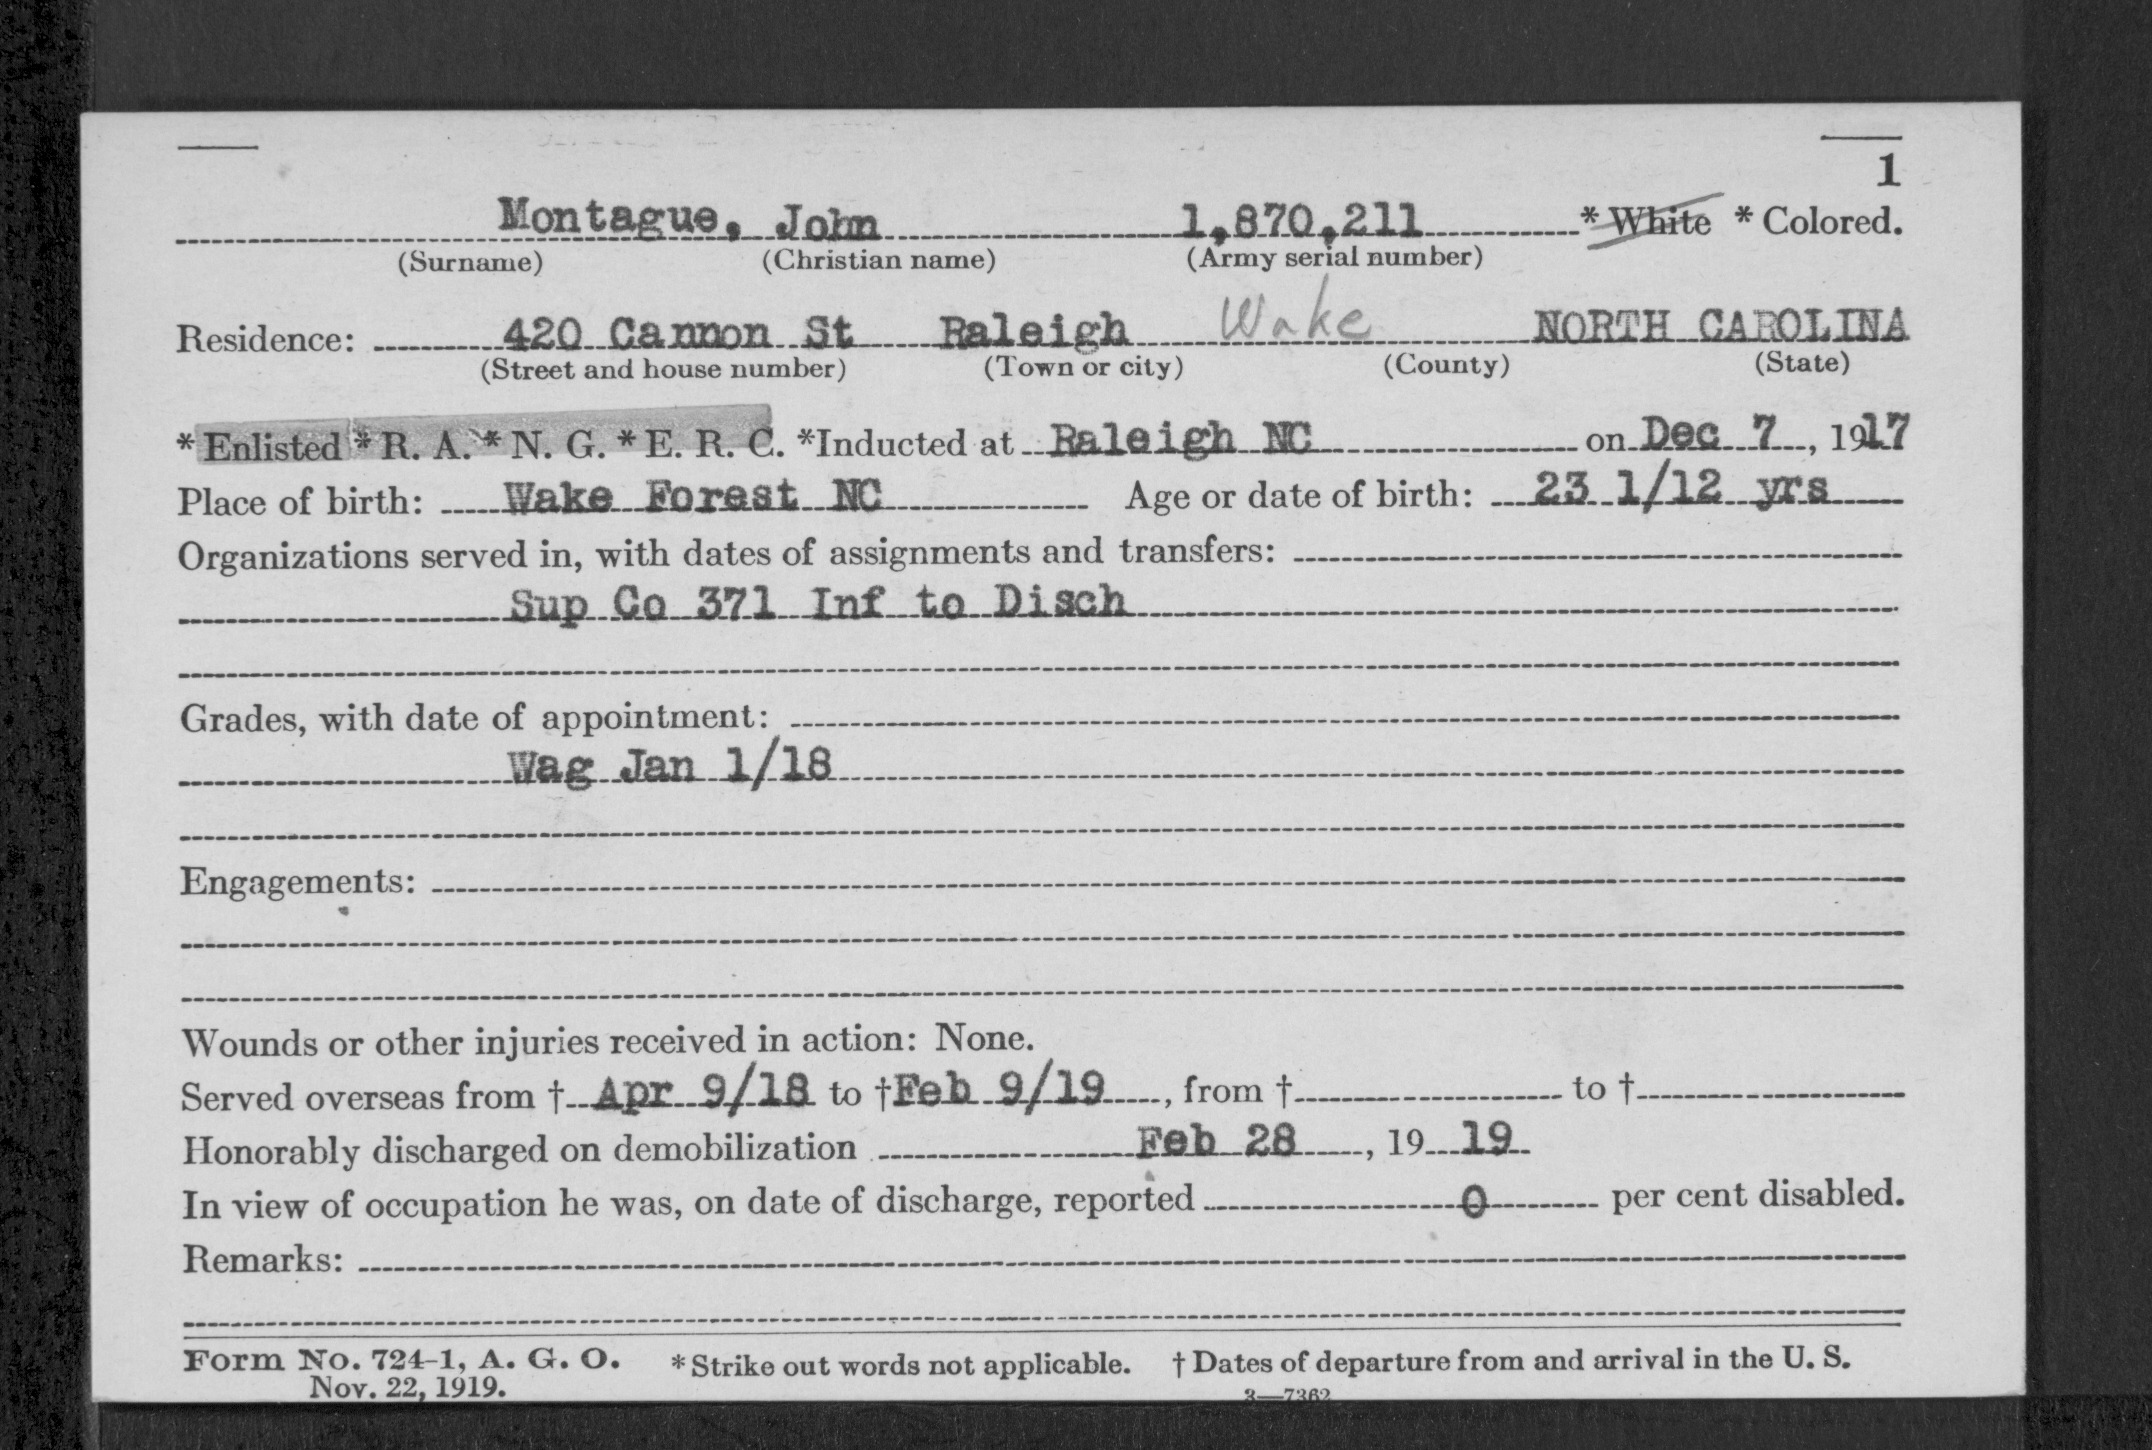 1
Montague, John 1,870,211 * White * Colored.
(Surname) (Christian name) (Army serial number)
Residence: 420 Cannon St Raleigh Wake NORTH CAROLINA
(Street and house number) (Town or city) (County) (State)
* Enlisted * R. A. * N. G. * E. R. C. *Inducted at Raleigh NC on Dec 7, 1917
Place of birth: Wake Forest NC Age or date of birth: 23 1/12 yrs
Organizations served in, with dates of assignments and transfers:
Sup Co 371 Inf to Disch
Grades, with date of appointment:
Wag Jan 1/18
Engagements:
Wounds or other injuries received in action: None.
Served overseas from † Apr 9/18 to † Feb 9/19, from † to †
Honorably discharged on demobilization Feb 28, 19 19
In view of occupation he was, on date of discharge, reported 0 per cent disabled.
Remarks:
Form No. 724-1, A. G. O. * Strike out words not applicable. † Dates of departure from and arrival in the U. S.
Nov. 22, 1919. 3—7362